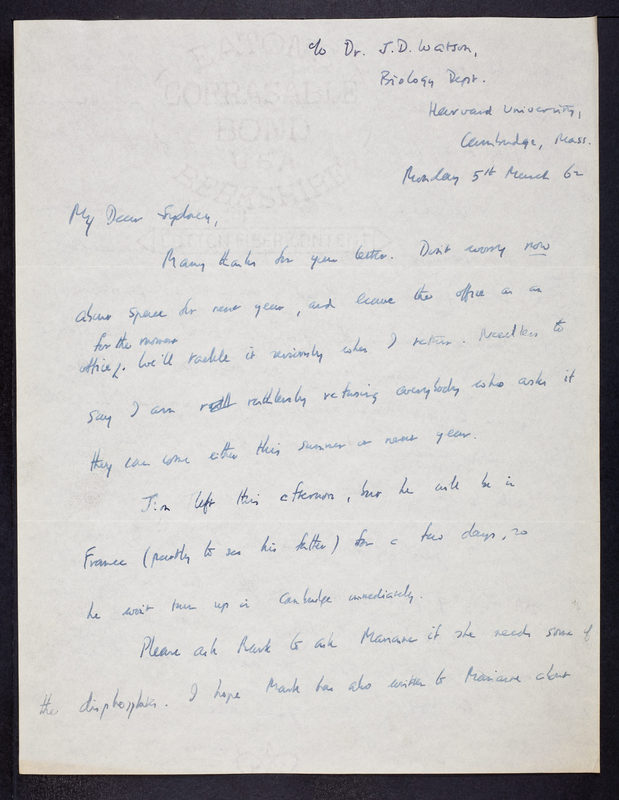 c/o Dr. J.D. Watson,
Biology Dept.
Harvard University,
Cambridge, Mass.
Monday 5th March 62
My Dear Sydney,
Many thanks for your letter. Don't worry now
about space for next year, and leave the office as an
for the moment
office. We'll tackle it seriously when I return. Needless to
say I am ruthlessly refusing everybody who asks if
they can come either this summer or next year.
Jim left this afternoon, but he will be in
France (partly to see his father) for a few days, so
he won't turn up in Cambridge immediately.
Please ask Mark to ask Marianne if she needs some of
the diphosphates. I hope Mark has also written to Marianne about